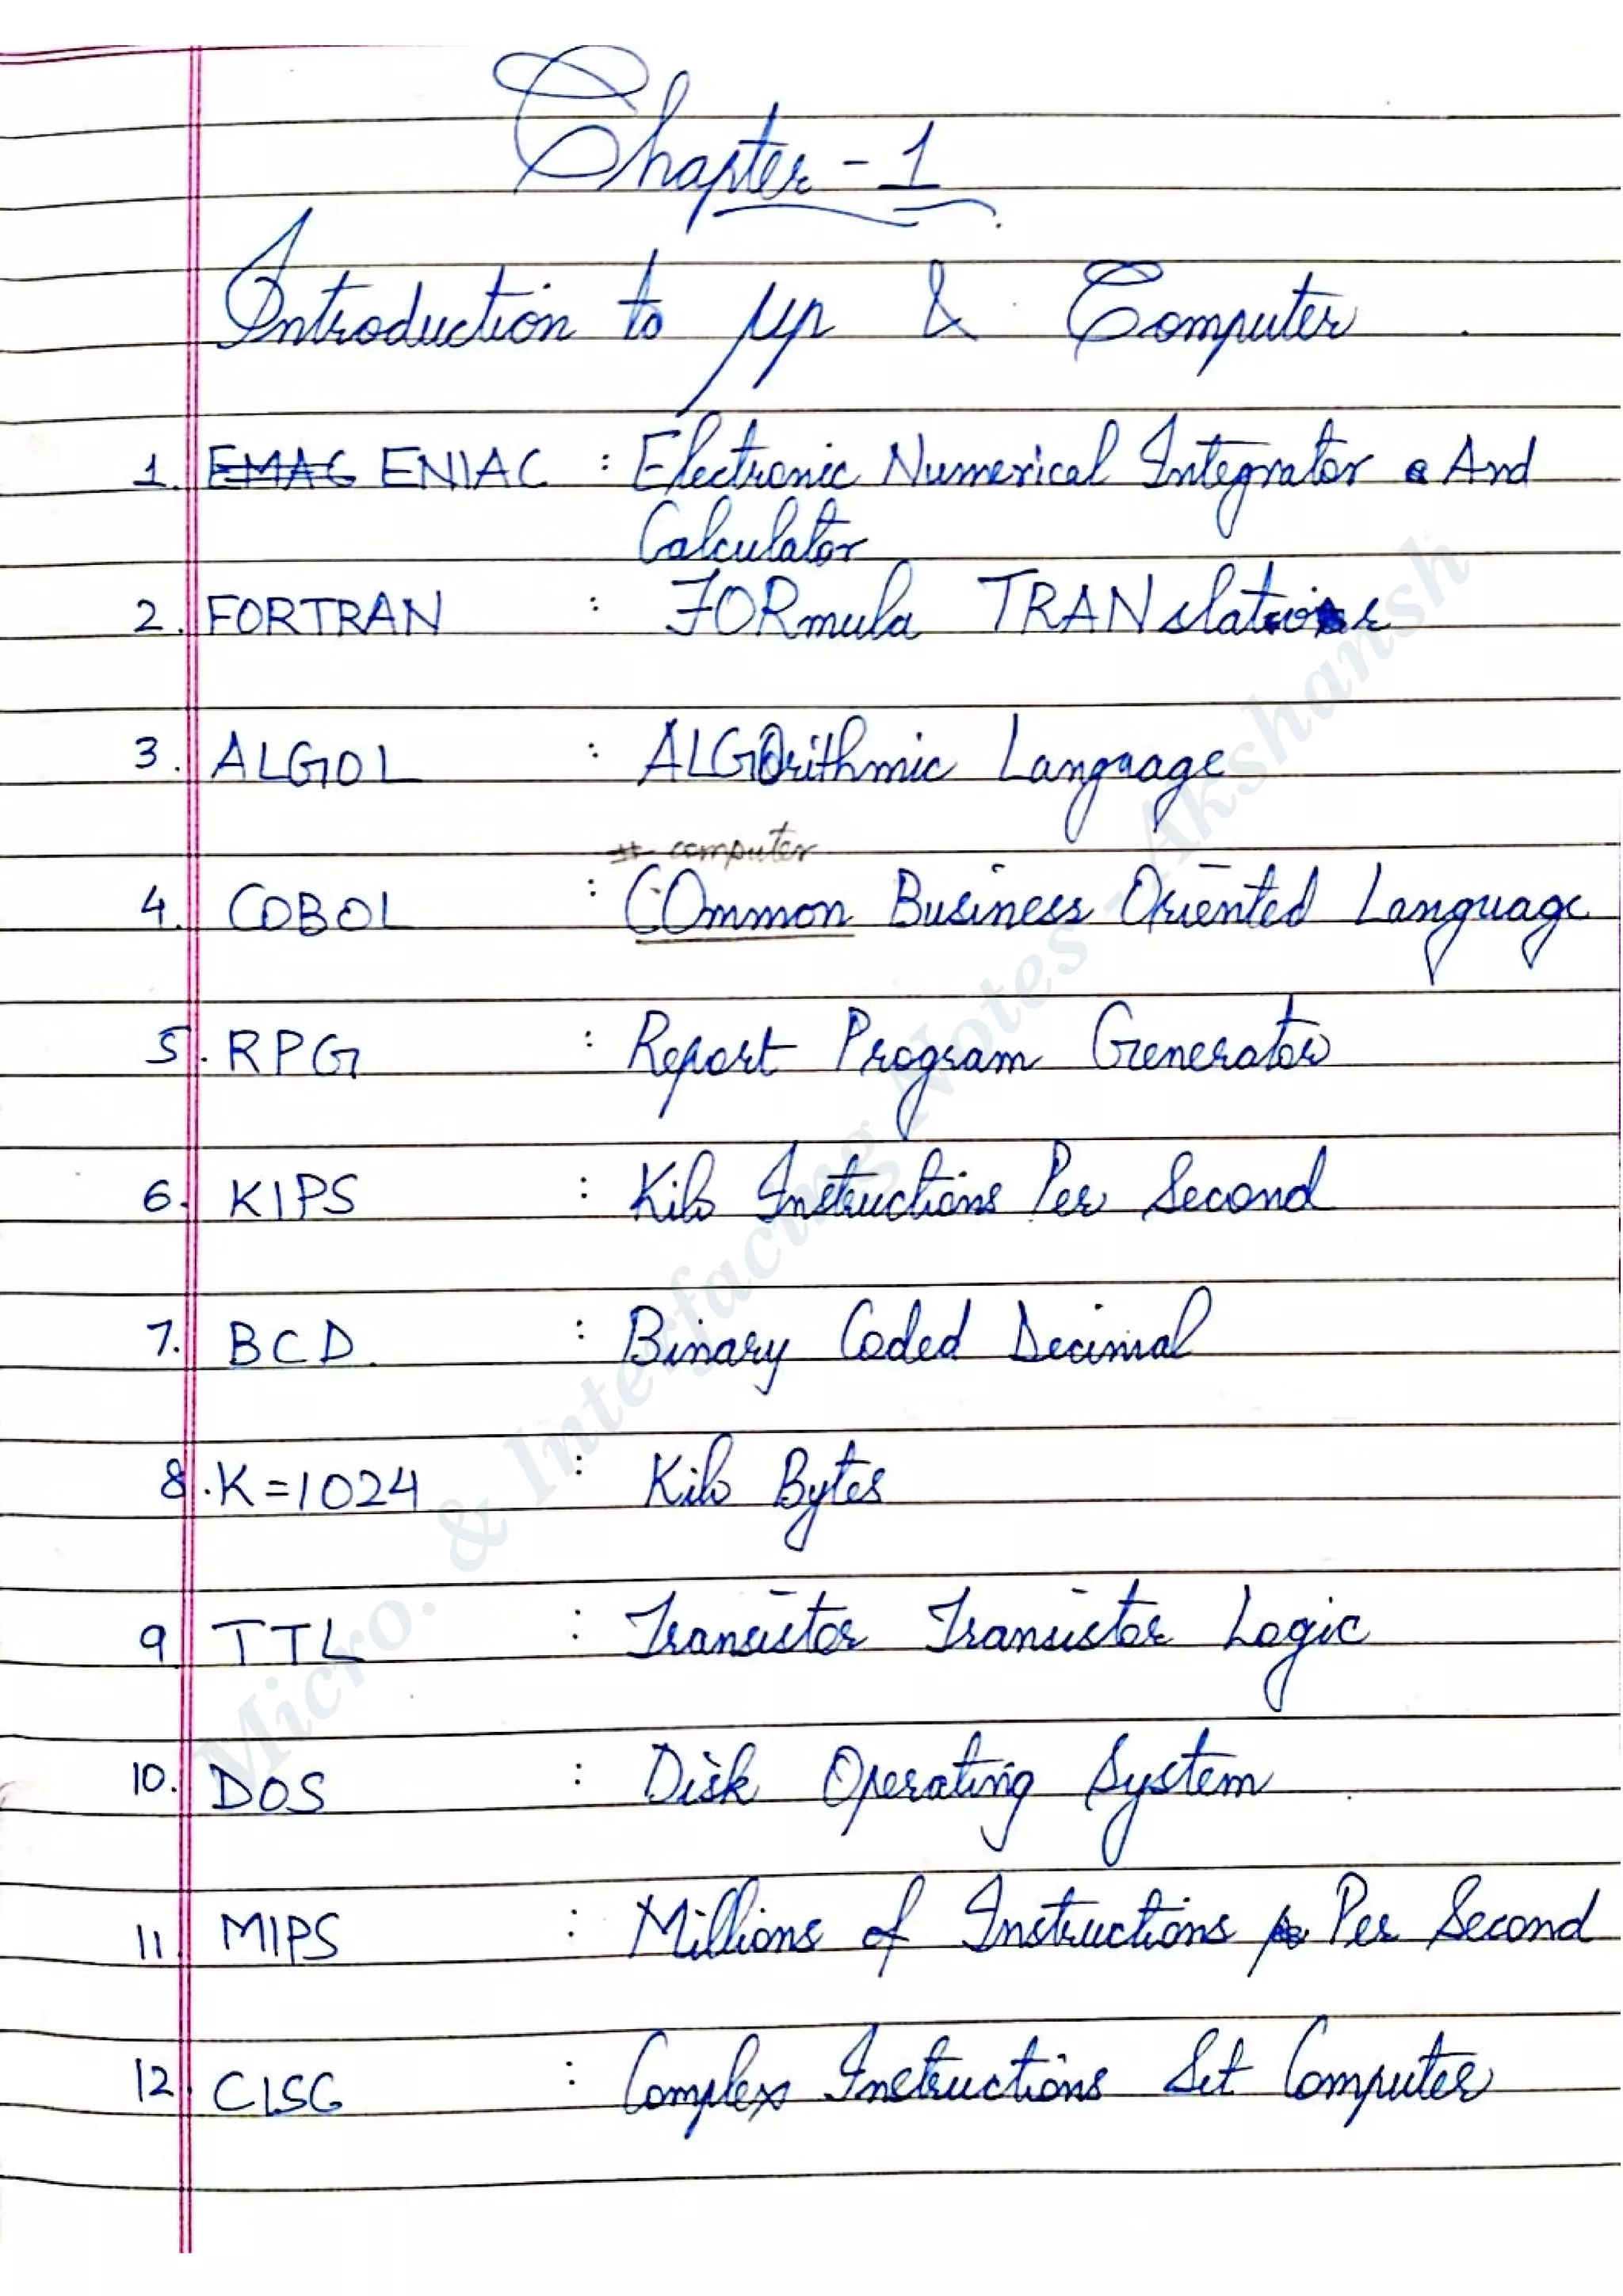 Chapter - 1
Introduction to μp & Computer
1. EMAC ENIAC : Electronic Numerical Integrator And
Calculator
2. FORTRAN : FORmula TRANslator
3. ALGOL : ALGOrithmic Language
# computer
4. COBOL : COmmon Business Oriented Language
5. RPG : Report Program Generator
6. KIPS : Kilo Instructions Per Second
7. BCD : Binary Coded Decimal
8. K=1024 : Kilo Bytes
9 TTL : Transistor Transistor Logic
10. DOS : Disk Operating System
11 MIPS : Millions of Instructions Per Second
12 CISC : Complex Instructions Set Computer
Micro. & Interfacing Notes - Akshansh